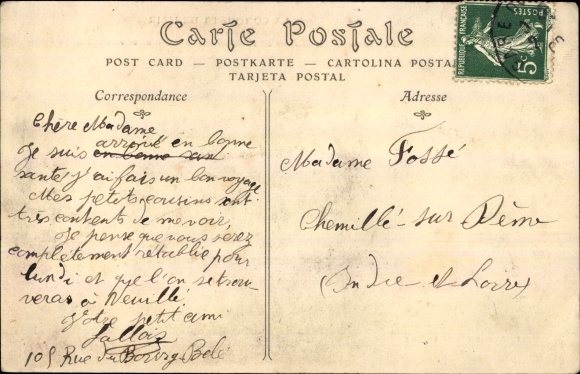 Carte Postale
POST CARD — POSTKARTE — CARTOLINA POSTA
TARJETA POSTAL
Correspondance
Chère Madame
arrivé en bonne
Je suis en bonne san
santé j'ai fais un bon voyage
Mes petits cousins sont
très contents de me voir,
Je pense que vous serez
complètement rétablie pour
lundi et que l'on se trou-
veras à Neuillé.
Votre petit ami
105 Rue du Bourg Belé
Adresse
Madame Fossé
Chemillé-sur Dême
(Indre-et-Loire)
RÉPUBLIQUE FRANÇAISE
POSTES
5c